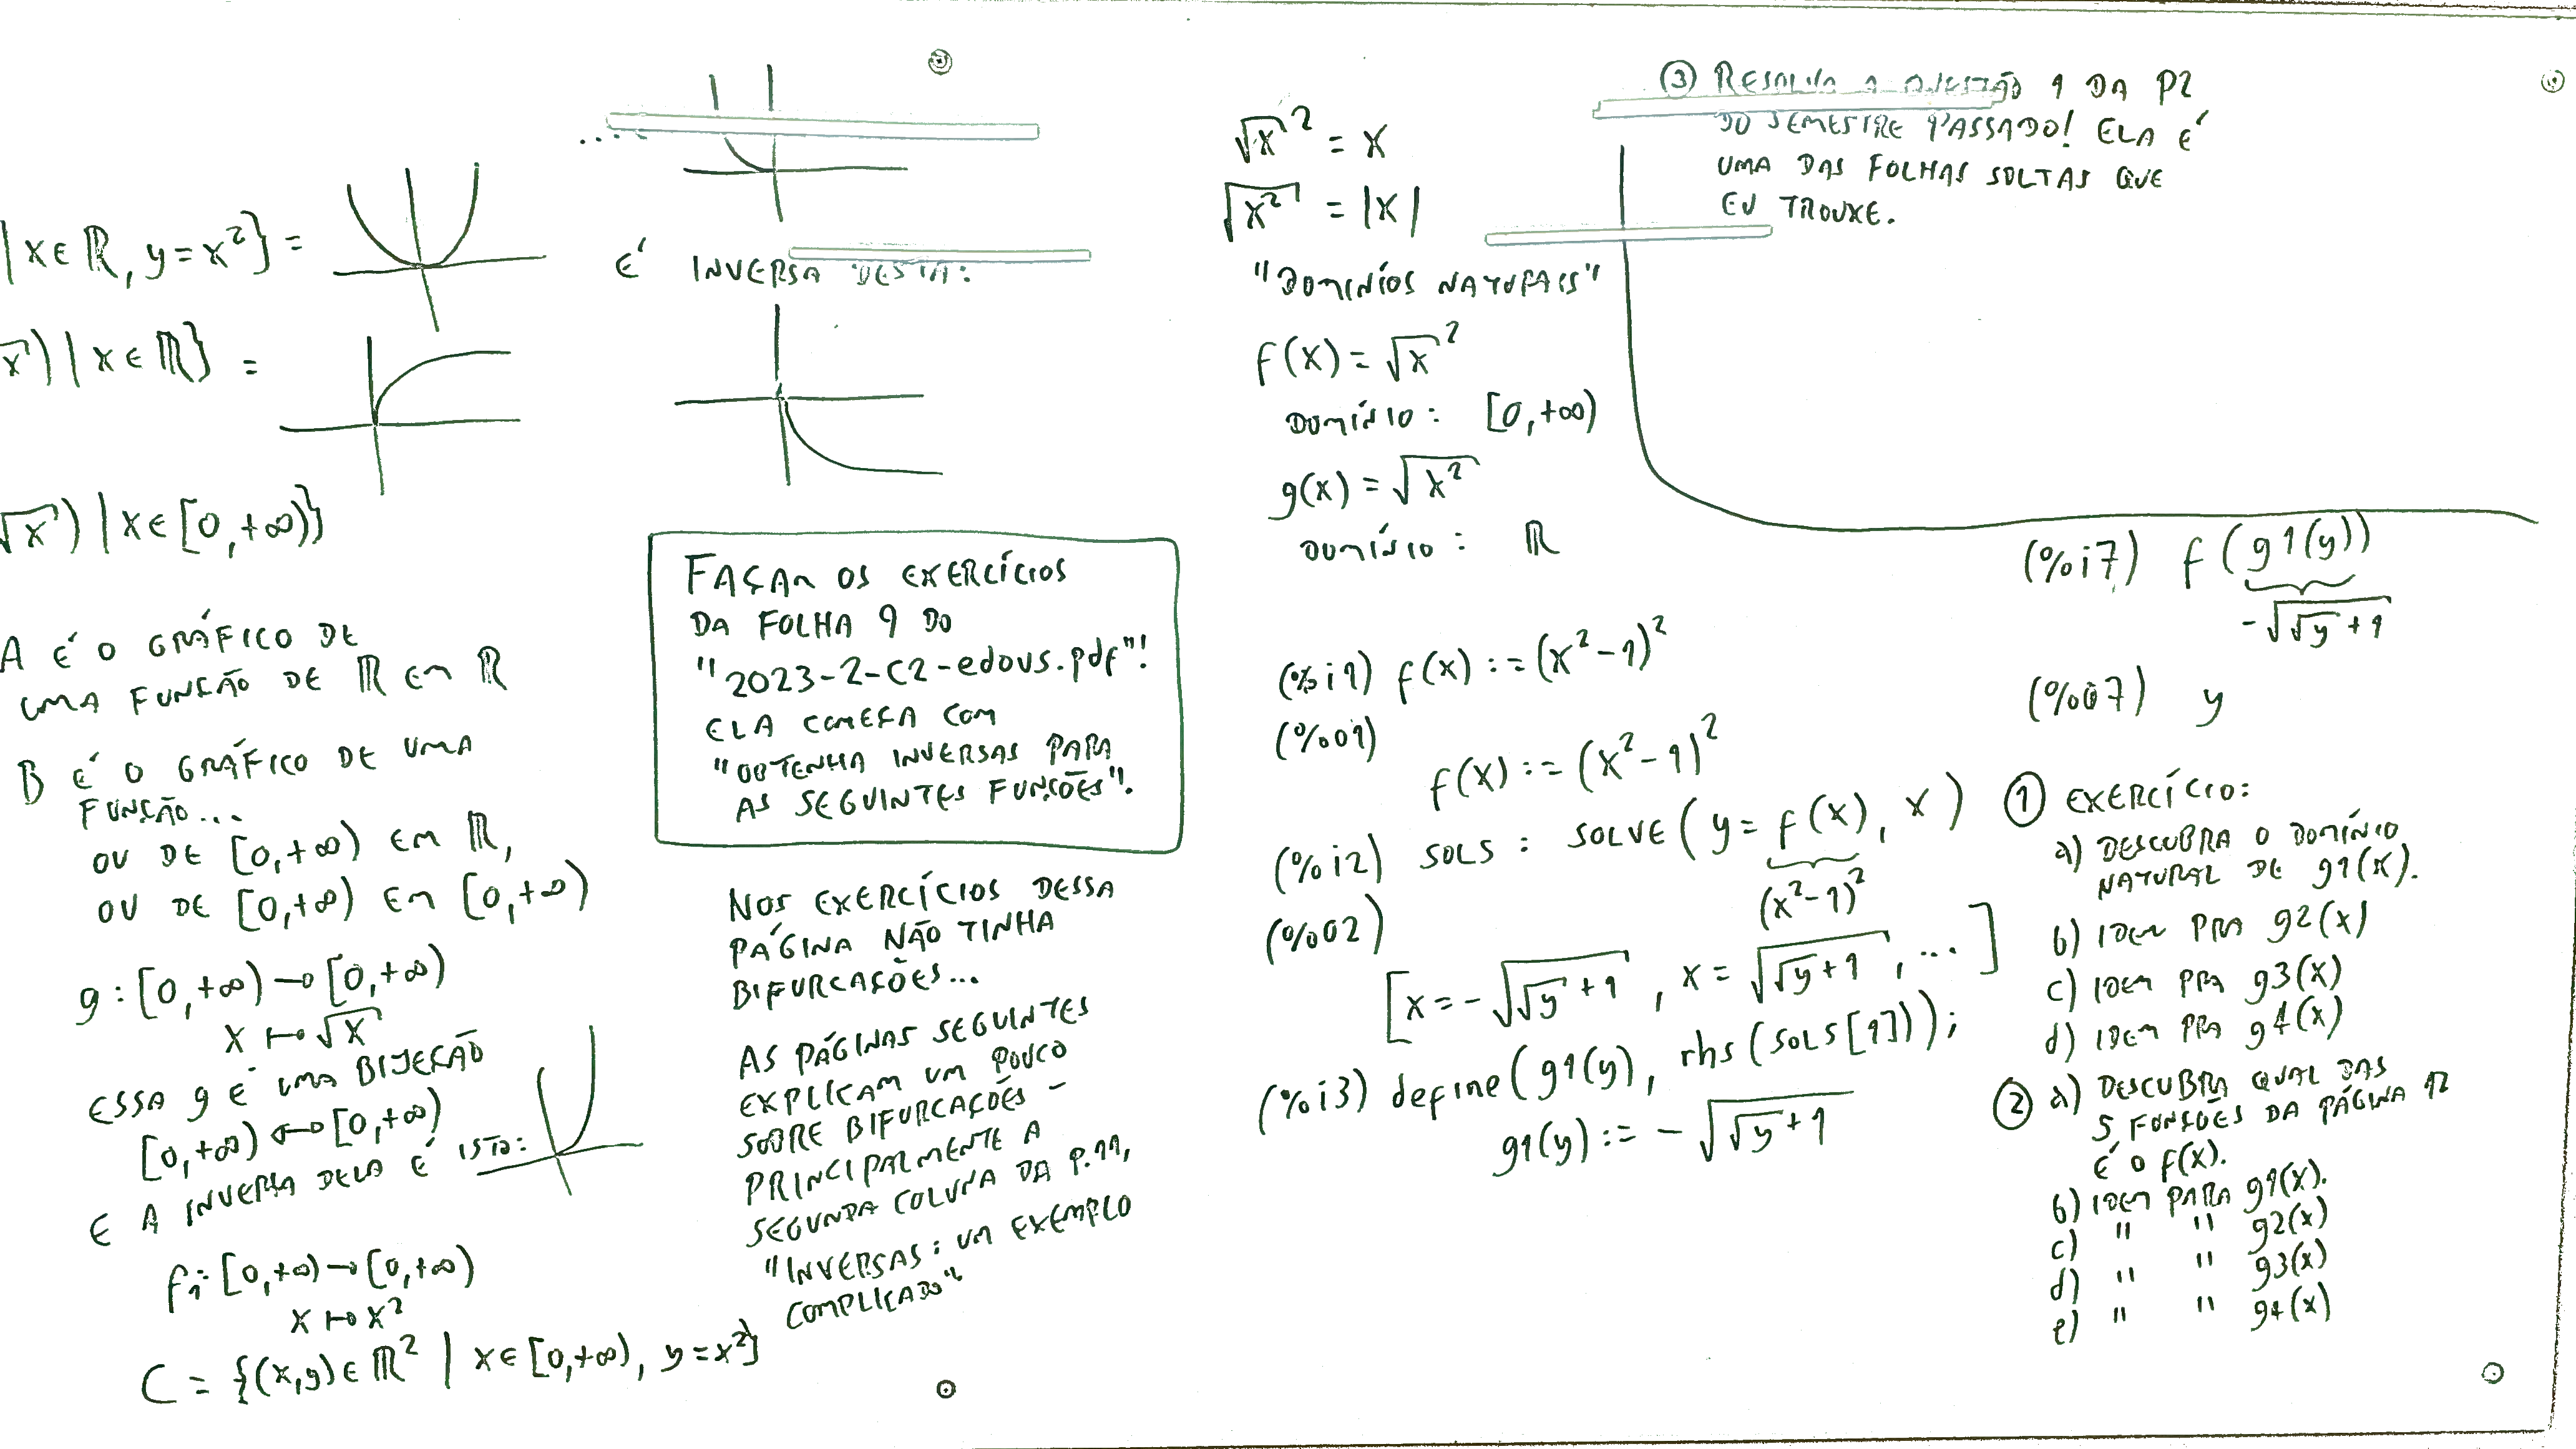 | x ∈ ℝ, y = x²} =
√x) | x ∈ ℝ} =
√x) | x ∈ [0,+∞)}
A É O GRÁFICO DE
UMA FUNÇÃO DE ℝ EM ℝ
B É O GRÁFICO DE UMA
FUNÇÃO...
OU DE [0,+∞) EM ℝ,
OU DE [0,+∞) EM [0,+∞)
g : [0,+∞) → [0,+∞)
x ↦ √x
ESSA g É UMA BIJEÇÃO
[0,+∞) ↔ [0,+∞)
E A INVERSA DELA É ISTO:
: [0,+∞) → [0,+∞)
x ↦ x²
C = {(x,y) ∈ ℝ² | x ∈ [0,+∞), y = x²}
....
É INVERSA DESTA:
FAÇAM OS EXERCÍCIOS
DA FOLHA 9 DO
"2023-2-C2-edovs.pdf"!
ELA COMEÇA COM
"OBTENHA INVERSAS PARA
AS SEGUINTES FUNÇÕES".
NOS EXERCÍCIOS DESSA
PÁGINA NÃO TINHA
BIFURCAÇÕES...
AS PÁGINAS SEGUINTES
EXPLICAM UM POUCO
SOBRE BIFURCAÇÕES –
PRINCIPALMENTE A
SEGUNDA COLUNA DA P.11,
"INVERSAS: UM EXEMPLO
COMPLICADO"
√x² = x
√(x²) = |x|
"DOMÍNIOS NATURAIS"
f(x) = √x²
DOMÍNIO: [0,+∞)
g(x) = √(x²)
DOMÍNIO: ℝ
(%i1) f(x) := (x²-1)²
(%o1)
f(x) := (x²-1)²
(%i2) SOLS : SOLVE(y = f(x), x)
(x²-1)²
(%o2)
[x = -√(√y+1), x = √(√y+1), ...]
(%i3) define(g1(y), rhs(SOLS[1]));
g1(y) := -√(√y+1)
③ RESOLVA A QUESTÃO 1 DA P2
DO SEMESTRE PASSADO! ELA É
UMA DAS FOLHAS SOLTAS QUE
EU TROUXE.
(%i7) f(g1(y))
-√(√y+1)
(%o7) y
① EXERCÍCIO:
a) DESCUBRA O DOMÍNIO
NATURAL DE g1(x).
b) IDEM PRA g2(x)
c) IDEM PRA g3(x)
d) IDEM PRA g4(x)
② a) DESCUBRA QUAL DAS
5 FUNÇÕES DA PÁGINA 12
É O f(x).
b) IDEM PARA g1(x).
c) " " g2(x)
d) " " g3(x)
e) " " g4(x)